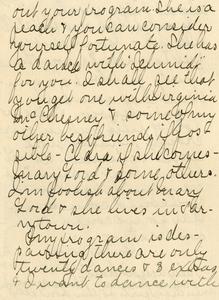 out your program. She is a
peach & you can consider
yourself fortunate. She has
a dance with Schmidt
for you. I shall see that
you get one with Virginia
McChesney & some of my
other best friends if pos-
sible - Clara if she comes -
Mary Lord & some others.
I'm foolish about Mary
Lord & she lives in
town.
My program is des-
pairing there are only
twenty dances & 3 extras
& I want to dance with